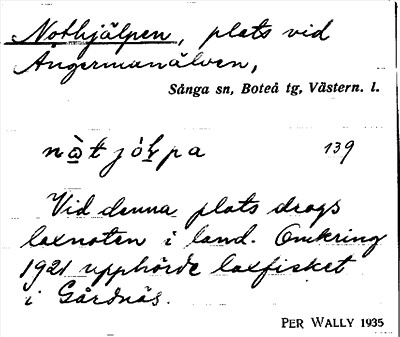 Nothjälpen, plats vid
Ångermanälven,
Sånga sn, Boteå tg, Västern. l.
nò̱tjóḷpa 139
Vid denna plats drogs
laxnoten i land. Omkring
1921 upphörde laxfisket
i Gårdnäs.
PER WALLY 1935